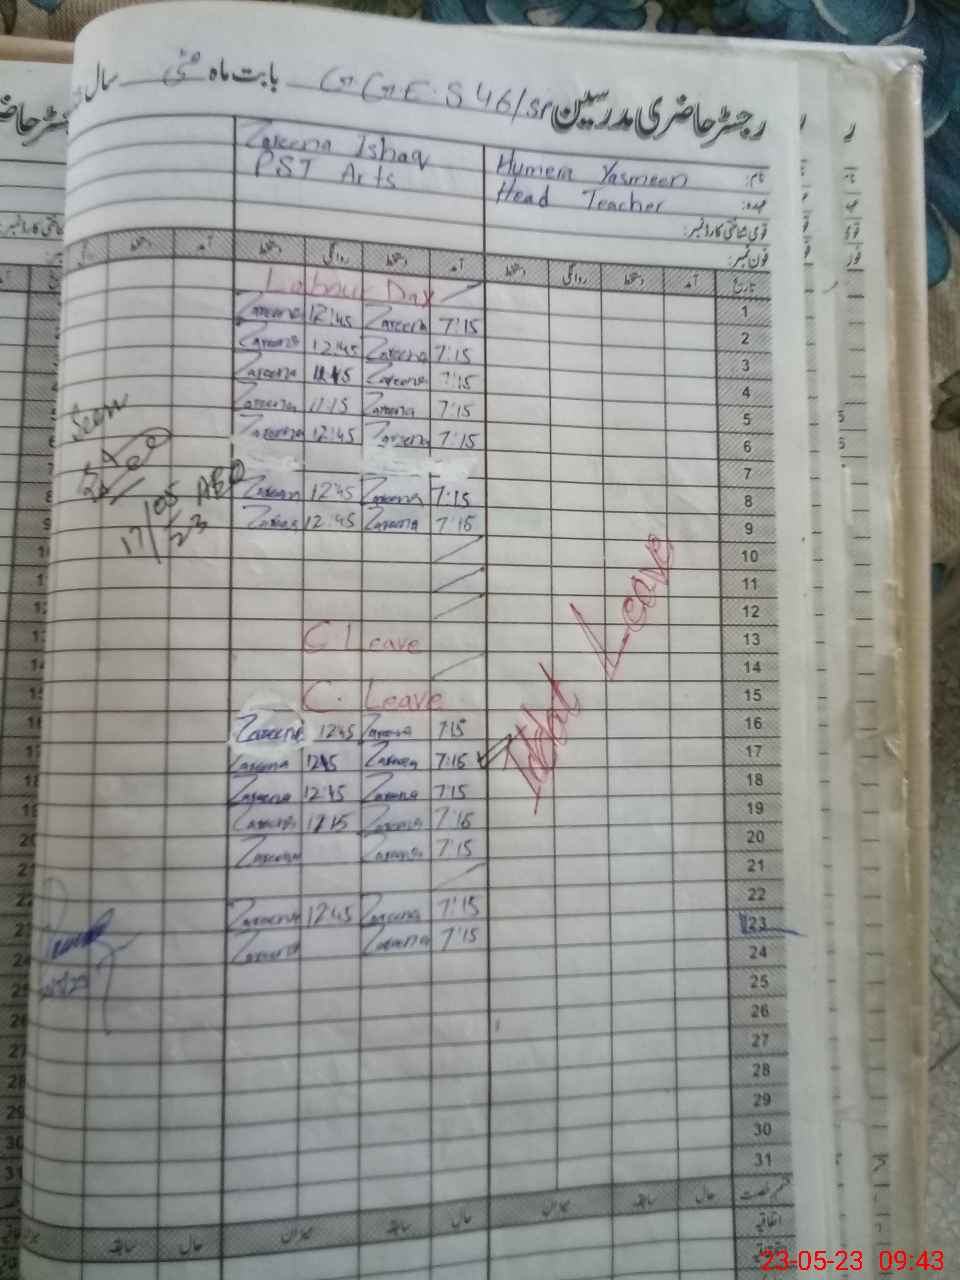 رجسٹر حاضری مدرسین G.G.E.S 46/sr بابت ماہ مئی سال
نام: Humera Yasmeen Zareena Ishaq
عہدہ: Head Teacher PST Arts
قومی شناختی کارڈ نمبر:
فون نمبر:
تاریخ آمد دستخط روانگی دستخط آمد دستخط روانگی دستخط آمد دستخط
1 Labour Day
2 7:15 Zareena 12:45 Zareena
3 7:15 Zareena 12:45 Zareena
4 7:15 Zareena Zareena
5 7:15 Zareena 11:15 Zareena
6 7:15 Zareena 12:45 Zareena
7
8 7:15 Zareena 12:45 Zareena
9 7:15 Zareena 12:45 Zareena
10
11
12
13 C Leave
14
15 C. Leave
16 7:15 Zareena 12:45 Zareena
17 7:15 Zareena 12:45 Zareena
18 7:15 Zareena 12:45 Zareena
19 7:15 Zareena Zareena
20 7:15 Zareena Zareena
21
22 7:15 Zareena 12:45 Zareena
23 7:15 Zareena Zareena
24
25
26
27
28
29
30
31
Leave
Seen
AEO
17/05/23
حال سابقہ میزان حال سابقہ میزان حال سابقہ
اتفاقیہ
23-05-23 09:43